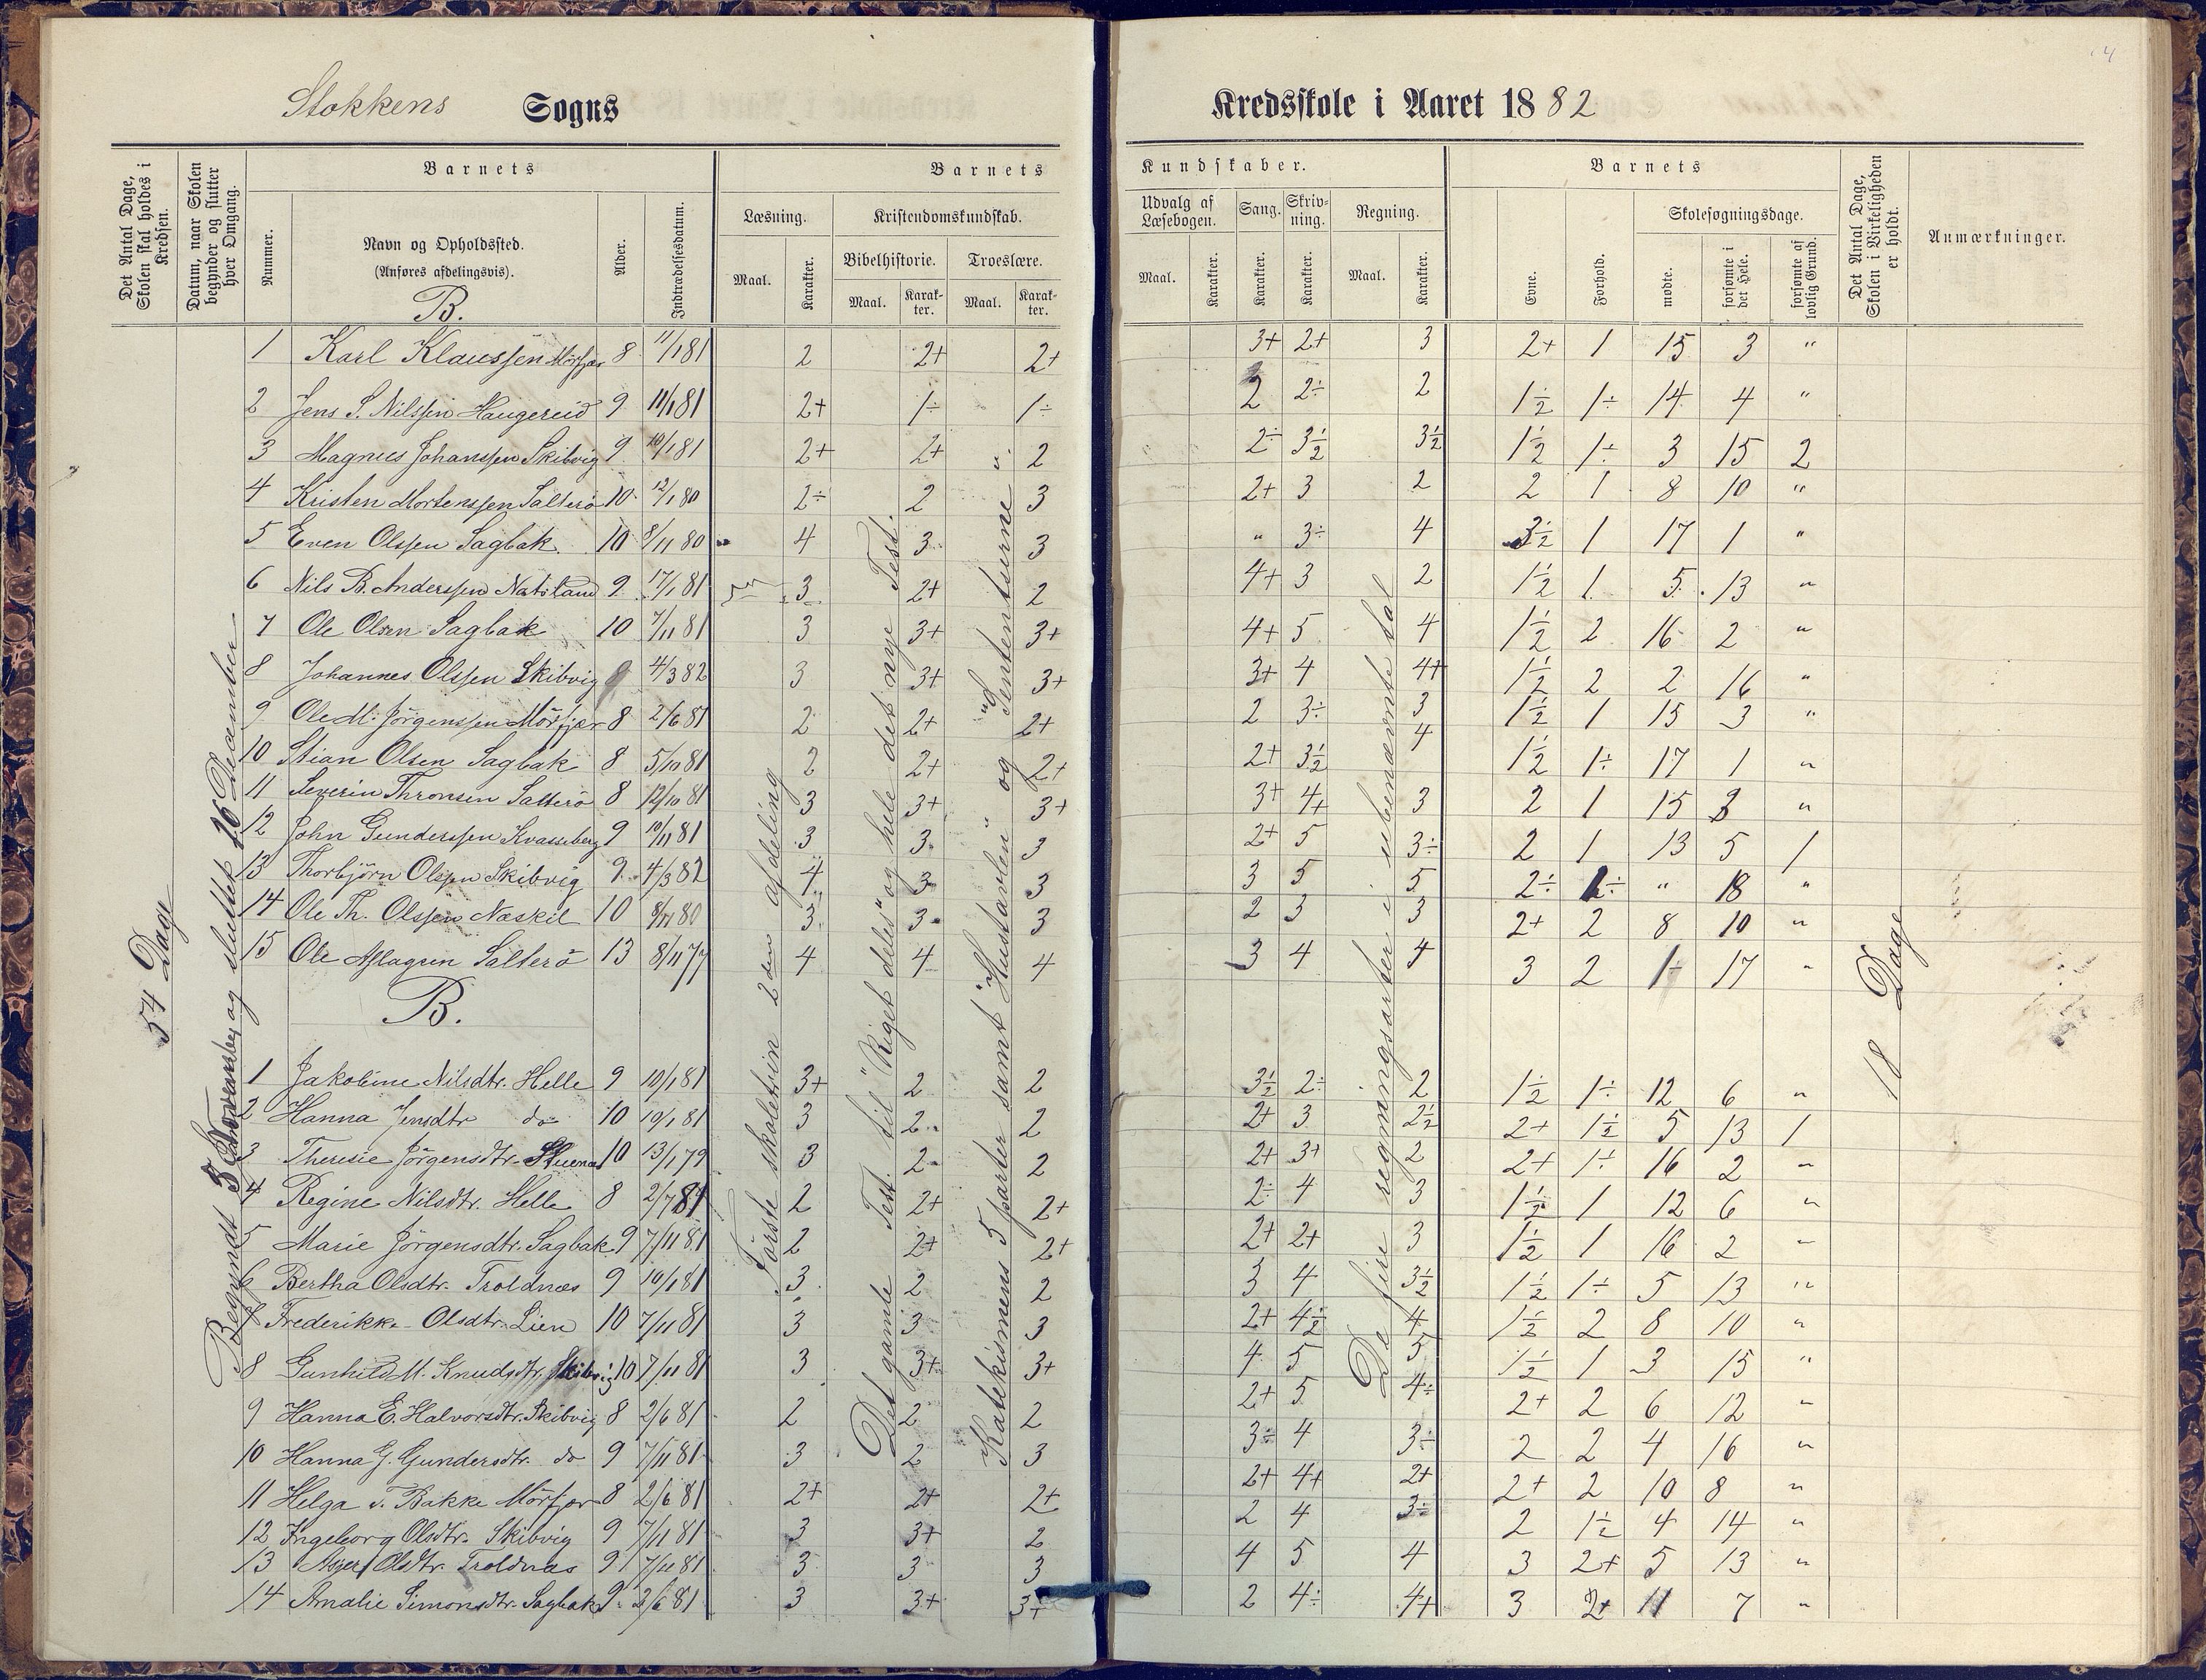 4
Stokkens Sogns Kredsskole i Aaret 1882
Det Antal Dage, Skolen skal holdes i Kredsen.
Datum, naar Skolen begynder og slutter hver Omgang.
Barnets
Nummer.
Navn og Opholdssted.
(Anføres afdelingsvis).
Alder.
Indtrædelsesdatum.
Barnets Kundskaber.
Læsning.
Maal. Karakter.
Kristendomskundskab.
Bibelhistorie.
Maal. Karakter.
Troeslære.
Maal. Karakter.
Udvalg af Læsebogen.
Maal. Karakter.
Sang. Karakter.
Skrivning. Karakter.
Regning.
Maal. Karakter.
Barnets
Evne.
Forhold.
Skolesøgningsdage.
mødte.
forsømte i det Hele.
forsømte af lovlig Grund.
Det Antal Dage, Skolen i Virkeligheden er holdt.
Anmærkninger.
54 Dage
Begyndt og sluttet 16 December
Første skoletrin 2den afdeling
Det gamle Test. til "Riget deles" og hele det nye Test.
Katekismens 5 parter samt "Hustavlen" og "Sententserne".
De fire regningsarter i ubenævnte tal
18 Dage
B.
1 Karl Klaussen Mörfjær 8 11/1 81 2 2+ 2+ 3+ 2+ 3 2+ 1 15 3 "
2 Jens S. Nilssen Haugereid 9 11/1 81 2+ 1÷ 1÷ 2 2÷ 2 1½ 1÷ 14 4 "
3 Magnus Johanssen Skibvig 9 10/1 81 2+ 2+ 2 2÷ 3½ 3½ 1½ 1÷ 3 15 2
4 Kristen Mortenssen Salterö 10 12/1 80 2÷ 2 3 2+ 3 2 2 1 8 10 "
5 Even Olssen Sagbak 10 8/11 80 4 3 3 " 3÷ 4 3½ 1 17 1 "
6 Nils B. Anderssen Natsland 9 17/1 81 3 2+ 2 4+ 3 2 1½ 1 5 13 "
7 Ole Olsen Sagbak 10 7/11 81 3 3+ 3+ 4+ 5 4 1½ 2 16 2 "
8 Johannes Olssen Skibvig 9 4/3 82 3 3+ 3+ 3+ 4 4+ 1½ 2 2 16 "
9 Ole M. Jörgenssen Mörfjær 8 2/6 81 2 2+ 2+ 2 3÷ 3 1½ 1 15 3 "
10 Stian Olsen Sagbak 8 5/10 81 2 2+ 2+ 2+ 3½ 4 1½ 1÷ 17 1 "
11 Severin Thronsen Salterö 8 12/10 81 3 3+ 3+ 3+ 4+ 3 2 1 15 3 "
12 John Gunderssen Kvasseberg 9 10/11 81 3 3 3 2+ 5 3÷ 2 1 13 5 1
13 Thorbjörn Olssen Skibvig 9 4/3 82 4 3 3 3 5 5 2÷ 1÷ " 18 "
14 Ole Th. Olssen Næskil 10 8/11 80 3 3 3 2 3 3 2+ 2 8 10 "
15 Ole Aslagsen Salterö 13 8/11 77 4 4 4 3 4 4 3 2 1 17 "
B.
1 Jakobine Nilsdtr. Helle 9 10/1 81 3+ 2 2 3½ 2÷ 2 1½ 1÷ 12 6 "
2 Hanna Jensdtr do 10 10/1 81 3 2 2 2+ 3 2½ 2+ 1½ 5 13 1
3 Theresie Jörgensdtr. 10 13/1 79 3 2 2 2+ 3+ 2 2+ 1÷ 16 2 "
4 Regine Nilsdtr. Helle 8 2/7 81 2 2+ 2+ 2÷ 4 3 1½ 1 12 6 "
5 Marie Jörgensdtr. Sagbak 9 7/11 81 2 2+ 2+ 2+ 2+ 3 1½ 1 16 2 "
6 Bertha Olsdtr. Troldnæs 9 10/1 81 3 2 2 3 4 3½ 1½ 1÷ 5 13 "
7 Frederikke Olsdtr. Lien 10 7/11 81 3 3 3 2+ 4½ 4 1½ 2 8 10 "
8 Gunhild M. Knudsdtr. Skibvig 10 7/11 81 3 3+ 3+ 4 5 5 1½ 1 3 15 "
9 Hanna E. Halvorsdtr. Skibvig 8 2/6 81 2 2 2 2+ 5 4÷ 2+ 2 6 12 "
10 Hanna G. Gundersdtr. do 9 7/11 81 3 2 3 3÷ 4 3÷ 2 2 4 16 "
11 Helga v. Bakke Mörfjær 8 2/6 81 2+ 2+ 2+ 2+ 4+ 2+ 2+ 2 10 8 "
12 Ingeborg Olsdtr. Skibvig 9 7/11 81 3 3+ 2 2 4 3÷ 2 1½ 4 14 "
13 Olsdtr. Troldnæs 9 7/11 81 3 3 3 4 5 4 3 2+ 5 13 "
14 Amalie Simonsdtr. Sagbak 9 2/6 81 3 3+ 3+ 2 4÷ 4+ 3 2+ 11 7 "